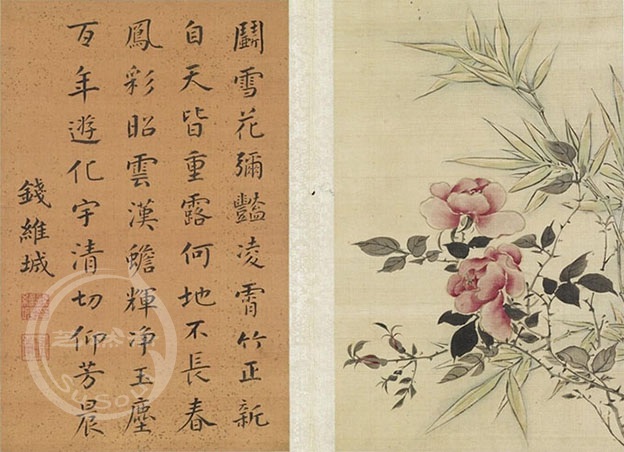 鬭雪花彌豔凌霄竹正新
自天皆重露何地不長春
鳳彩昭雲漢蟾輝净玉塵
百年遊化宇清切仰芳晨
錢維城